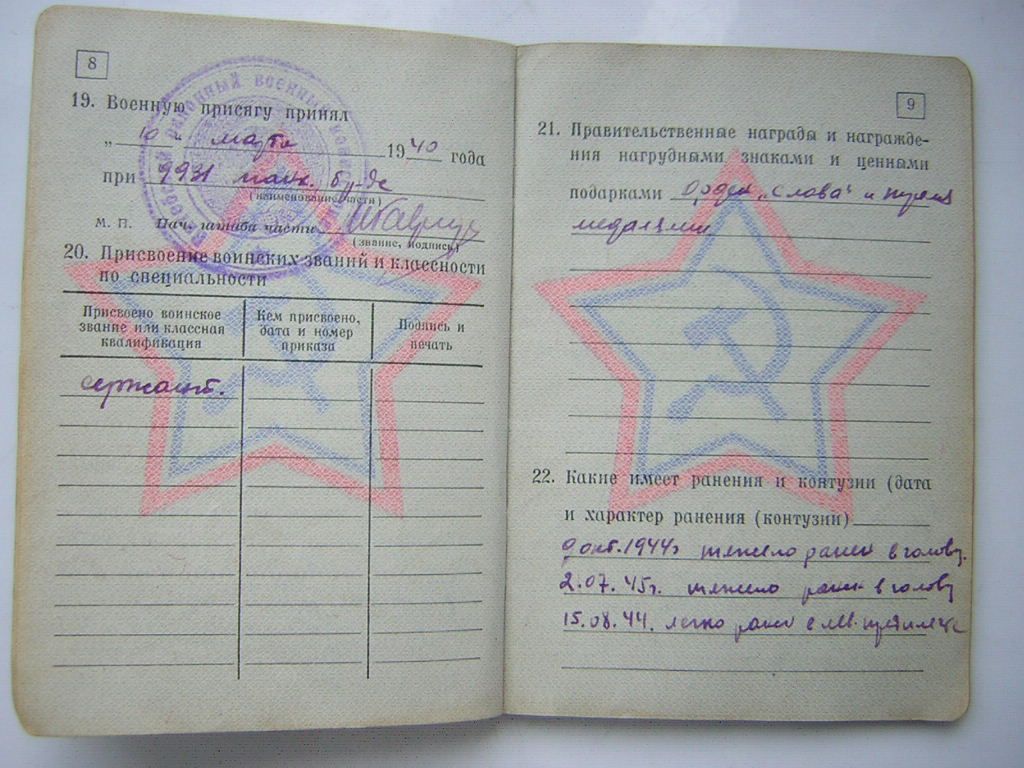 8
19. Военную присягу принял
„ 10 " марта 1940 года
при 9931
(наименование части)
М. П. Нач. штаба части
(звание, подпись)
20. Присвоение воинских званий и классности
по специальности
Присвоено воинское
звание или классная
квалификация
Кем присвоено,
дата и номер
приказа
Подпись и
печать
сержант.
9
21. Правительственные награды и награжде-
ния нагрудными знаками и ценными
подарками Орден „Слава" и
медалями
22. Какие имеет ранения и контузии (дата
и характер ранения (контузии)
окт. 1944г тяжело ранен в голову.
2.07.45г. тяжело ранен в голову
15.08.44. легко ранен